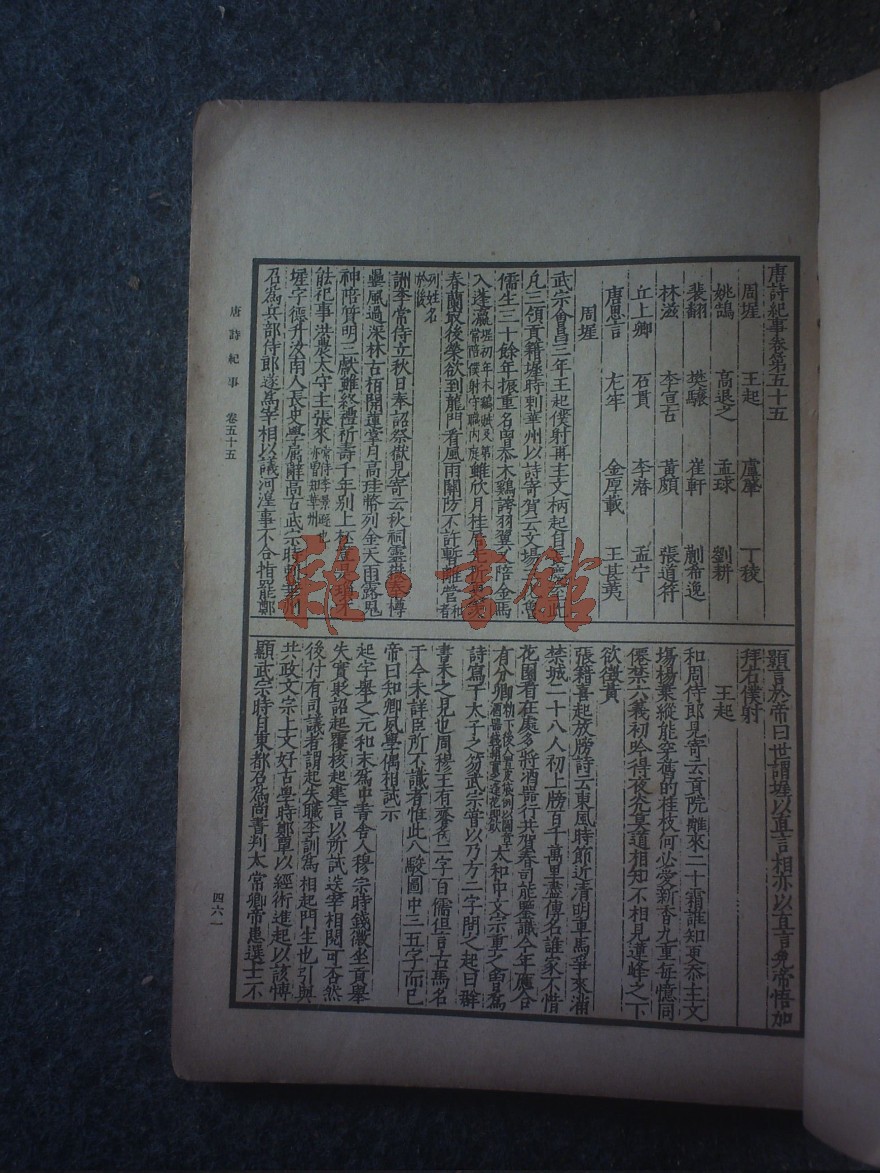 唐詩紀事卷第五十五
周墀 王起 盧肇 丁稜
姚鵠 高退之 孟球 劉耕
裴翻 樊驤 崔軒 蒯希逸
林滋 李宣古 黃頗 張道符
丘上卿 石貫 李潛 孟宁
唐思言 尤牢 金厚載 王甚夷
周墀
武宗會昌三年王起僕射再主文柄起自
凡三領貢籍墀時刺華州以詩寄賀云文場
儒生三十餘年振重名曾忝木鷄誇羽翼 陪金馬
入蓬瀛墀初年木鷄賦及第常陪僕射守職內庭雖欣月桂
春蘭最後榮欲到龍門看風雨關防不許暫離營
列姓名於後
詶李常侍立秋日奉詔祭嶽見寄云秋祠靈嶽奉罇
罍風過深林古栢開蓮掌月高珪幣列金天雨露鬼
神陪筓明三獻雖終禮祈壽千年别上杯
能祀事洪農太守主張來常侍李景讓也亦曾知華州
墀字德升汝南人長史學屬辭高古武宗時刺華州
召為兵部侍郎遂為宰相以議河湟事不合指罷鄭
顥言於帝曰世謂墀以直言相亦以直言免帝悟加
拜右僕射
王起
和周侍郎見寄云貢院離來二十霜誰知更忝主文
塲楊葉縱能穿舊的桂枝何必愛新香九重每憶同
僊禁六義初吟得夜光莫道相知不相見蓮峰之下
欲徵黃
張籍喜起放牓詩云東風時節近清明車馬爭來滿
禁城二十八人初上牓百千萬里盡傳名誰家不惜
花園看在處多將酒器行共賀春司能鑒識今年應合
有分卿 太和中文宗重之曾為
詩寫于太子之笏武宗嘗以乃方二字問之起曰臣
書未之見也周穆王有 二字百儒但言古馬名
于今未詳臣所不識者惟此八駿圖中三五字而已
帝曰知卿夙學偶相試示
起字舉之元和末為中書舍人穆宗時錢徽坐貢舉
失實敗詔起覆核起建言以所試送宰相閱可否然
後付有司議者謂起失職李訓為相起門生也引與
共政文宗上文好古學時鄭覃以經術進起以該博
顯武宗時自東都召為尚書判太常卿帝患選士不
唐詩紀事 卷五十五
四六一
雜·書館